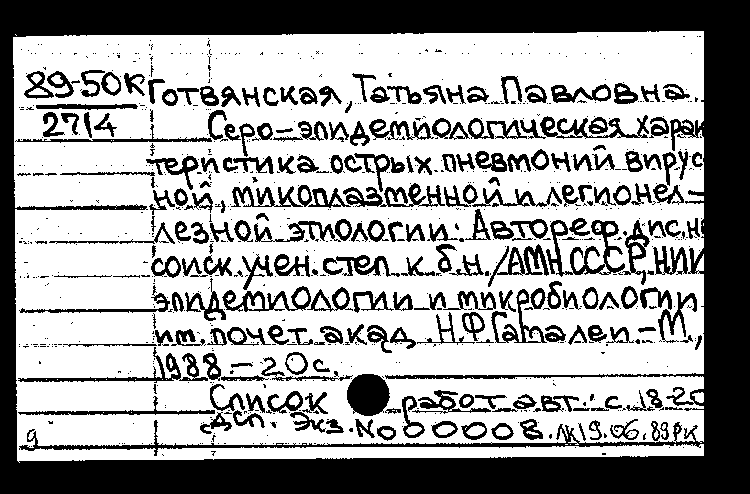 89-50К
2714
Готвянская, Татьяна Павловна.
Серо-эпидемиологическая харак
теристика острых пневмоний вирус
ной, микоплазменной и легионел-
лезной этиологии: Автореф. дис. на
соиск. учен. степ к.б.н./АМН СССР, НИИ
эпидемиологии и микробиологии
им. почет. акад. Н.Ф. Гамалеи.-М.,
1988.-20с.
Список работ авт.: с. 18-20
дсп. Экз. № 00008. ЛК19.06.89РК
9